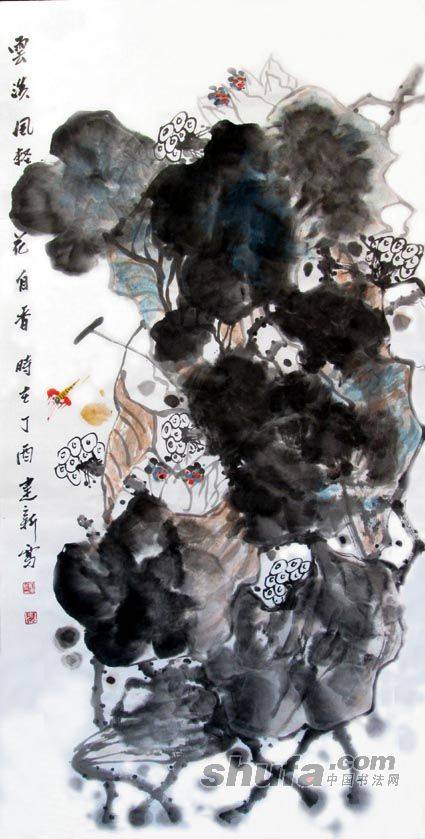 雲淡風輕花自香時在丁酉建新寫
shufa.com
中国书法网